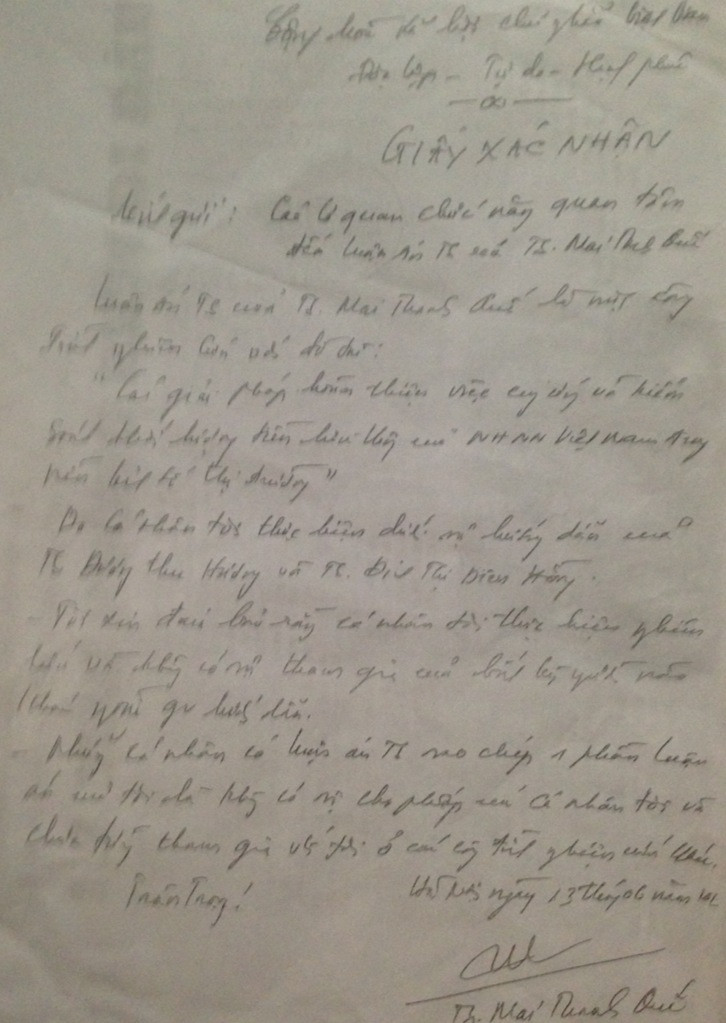 Cộng hoà xã hội chủ nghĩa Việt Nam
Độc lập - Tự do - Hạnh phúc
GIẤY XÁC NHẬN
Kính gửi: Các cơ quan chức năng quan tâm
đến luận án TS của TS. Mai Thanh Quế
Luận án TS của TS. Mai Thanh Quế là một công
trình nghiên cứu với đề tài:
"Các giải pháp hoàn thiện việc cung ứng và kiểm
soát khối lượng tiền của NHNN Việt Nam trong
nền kinh tế thị trường"
Do cá nhân tôi thực hiện dưới sự hướng dẫn của
TS Dương Thu Hương và TS. Thị Diên Hồng.
- Tôi xin đảm bảo rằng cá nhân tôi thực hiện nghiêm
túc và không có sự tham gia của bất kỳ người nào
khác ngoài hướng dẫn.
- Những cá nhân có luận án TS sao chép 1 phần luận
án của tôi đều không có sự cho phép của cá nhân tôi và
chưa từng tham gia với tôi ở các công trình nghiên cứu khác.
Trân Trọng!
Hà Nội ngày 13 tháng 06 năm
TS. Mai Thanh Quế